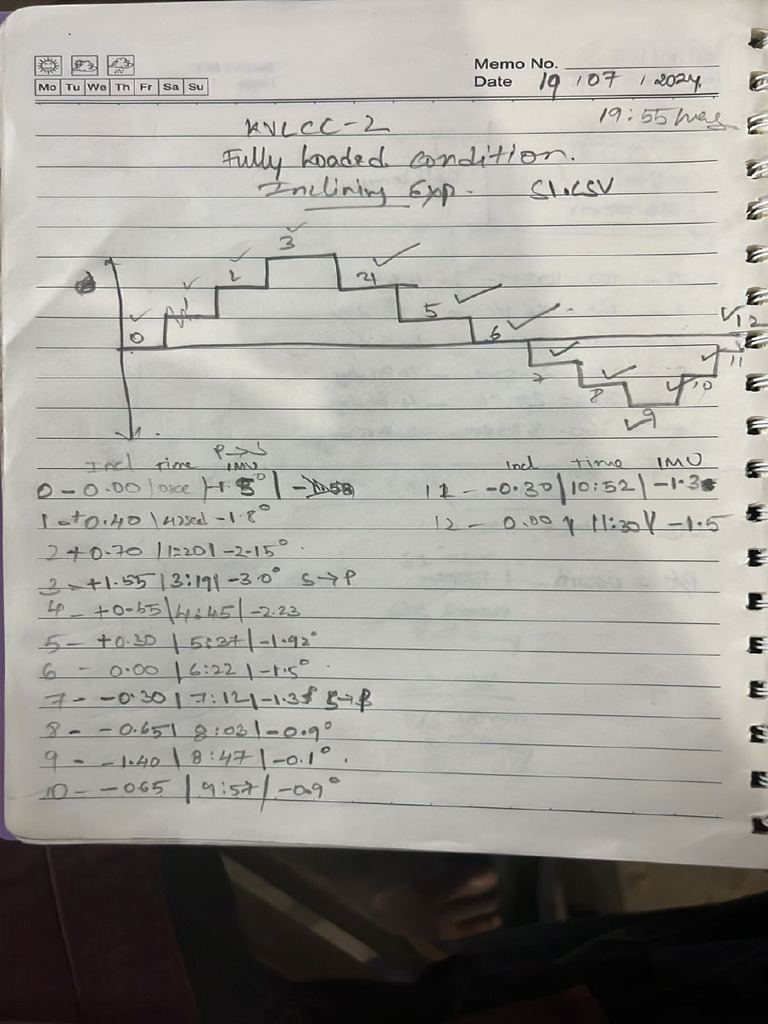 Memo No.
Mo Tu We Th Fr Sa Su
Date 19 / 07 / 2024
19:55
KVLCC-2
Fully Loaded condition.
Inclining Exp. S1.CSV
3
2
4
1
5
12
0
6
11
7
10
8
9
P→S
Incl Time IMU
Incl Time IMU
0 - 0.00 |
11 - -0.30 | 10:52 | -1.3
1 - +0.40 | 42sec | -1.8°
12 - 0.00 | 11:30 | -1.5
2 + 0.70 | 1:20 | -2.15°
3 - +1.55 | 3:19 | -3.0° S→P
4 - +0.65 | 4:45 | -2.23
5 - +0.30 | 5:37 | -1.92°
6 - 0.00 | 6:22 | -1.5°
7 - -0.30 | 7:12 | -1.3
8 - -0.65 | 8:03 | -0.9°
9 - -1.40 | 8:47 | -0.1°.
10 - -0.65 | 9:57 | -0.9°